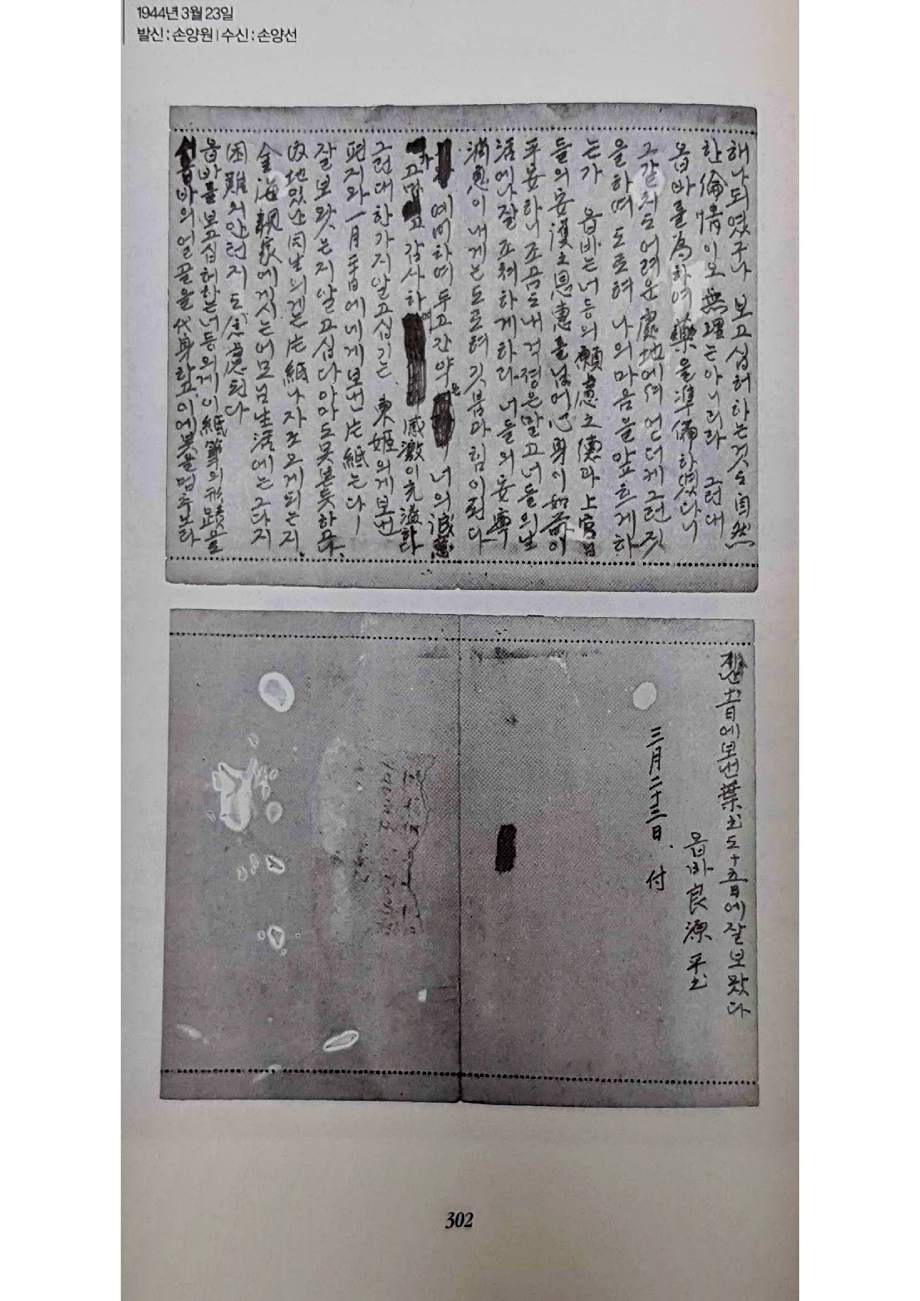 1944년 3월 23일
발신 : 손양원 | 수신 : 손양선
해나 되엿구나 보고 십허하는 것도 自然
한 倫情이오 無理는 아니리라 그런대
옵바를 爲하여 藥을 準備하엿다니
그갓치도 어려운 處地에서 언더케 그런 짓
을 하며 도로혀 나의 마음을 앞흐게 하
는가 옵바는 너등의 願慮之德과 上官님
들의 安護之恩惠를 님어 心身이 如前이
平安하니 조곰도 내 걱졍은 말고 너들의 生
活에나 잘 조처하게 하라 너들의 安寧
消息이 내게는 도로혀 깃붐과 힘이 된다
예비하며 두고 간 약은 너의 誠意
고맙고 감사하여 感激이 充溢하다
그런대 한가지 알고 십기는 東姬의게 보낸
편지와 一月 日에 네게 보낸 片紙는 다
잘 보왓는지 알고 십다 아마도 못 본 듯하다
內地 잇는 동生의게는 片紙나 자조 오게 되는지
金海 親家에게서는 어모님 生活에는 그다지
困難의 안턴지 도 念된다
옵바를 보고 십허하는 너등의게 이 紙筆의 形蹟을
옵바의 얼골을 代身하라고 이에 붓을 멈추노라
에 보낸 葉書도 十五日에 잘 보왓다
옵바 良源 平書
三月二十三日 付
302